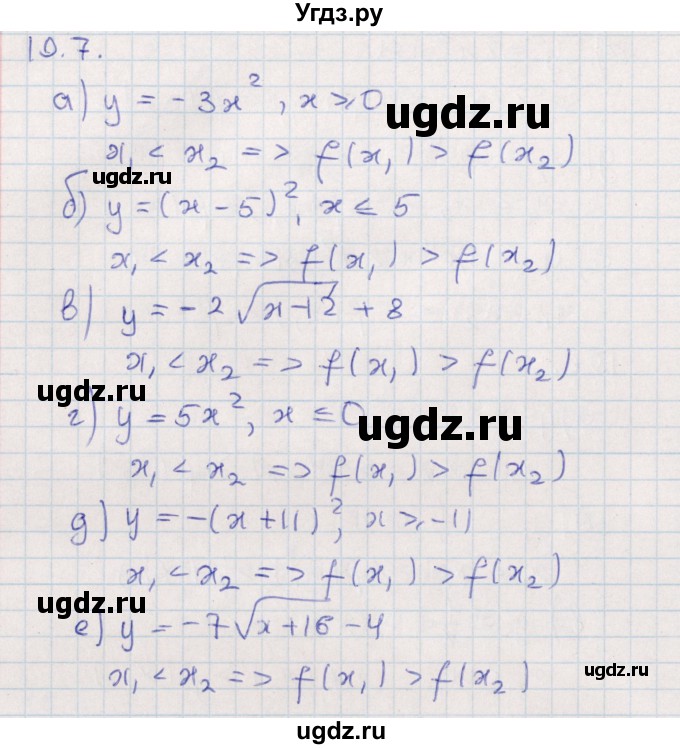 Угдз.ру
10.7.
а) y = -3x², x ≥ 0
ugdz.ru
x₁ < x₂ => f(x₁) > f(x₂)
ugdz.ru
б) y = (x - 5)², x ≤ 5
x₁ < x₂ => f(x₁) > f(x₂)
в) y = -2√(x-12) + 8
x₁ < x₂ => f(x₁) > f(x₂)
ugdz.ru
г) y = 5x², x ≤ 0
ugdz.ru
x₁ < x₂ => f(x₁) > f(x₂)
д) y = -(x+11)², x ≥ -11
x₁ < x₂ => f(x₁) > f(x₂)
ugdz.ru
е) y = -7√(x+16) - 4
x₁ < x₂ => f(x₁) > f(x₂)
ugdz.ru
ugdz.ru